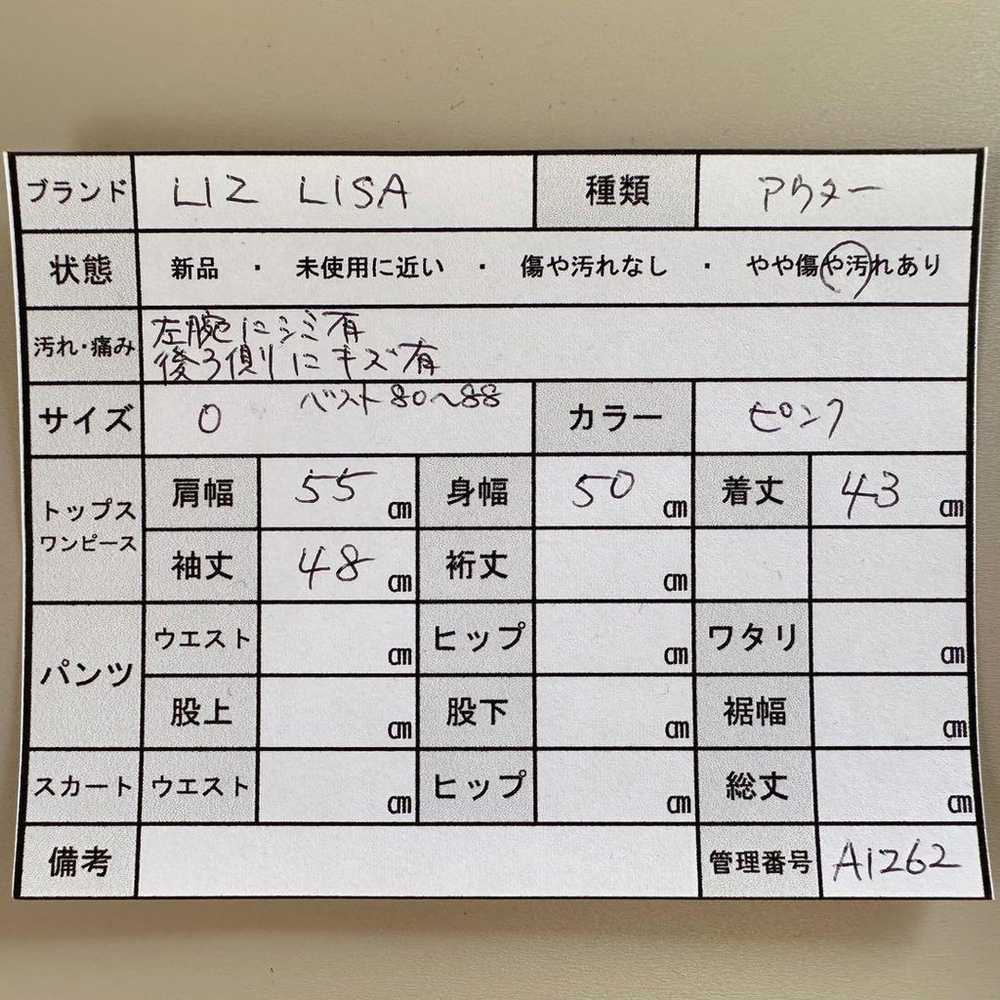 ブランド LIZ LISA 種類 アウター
状態 新品 ・ 未使用に近い ・ 傷や汚れなし ・ やや傷や汚れあり
汚れ・痛み 左腕にシミ有
後ろ側にキズ有
サイズ 0 バスト80〜88 カラー ピンク
トップス ワンピース 肩幅 55 cm 身幅 50 cm 着丈 43 cm
袖丈 48 cm 裄丈 cm
パンツ ウエスト cm ヒップ cm ワタリ cm
股上 cm 股下 cm 裾幅 cm
スカート ウエスト cm ヒップ cm 総丈 cm
備考 管理番号 A1262